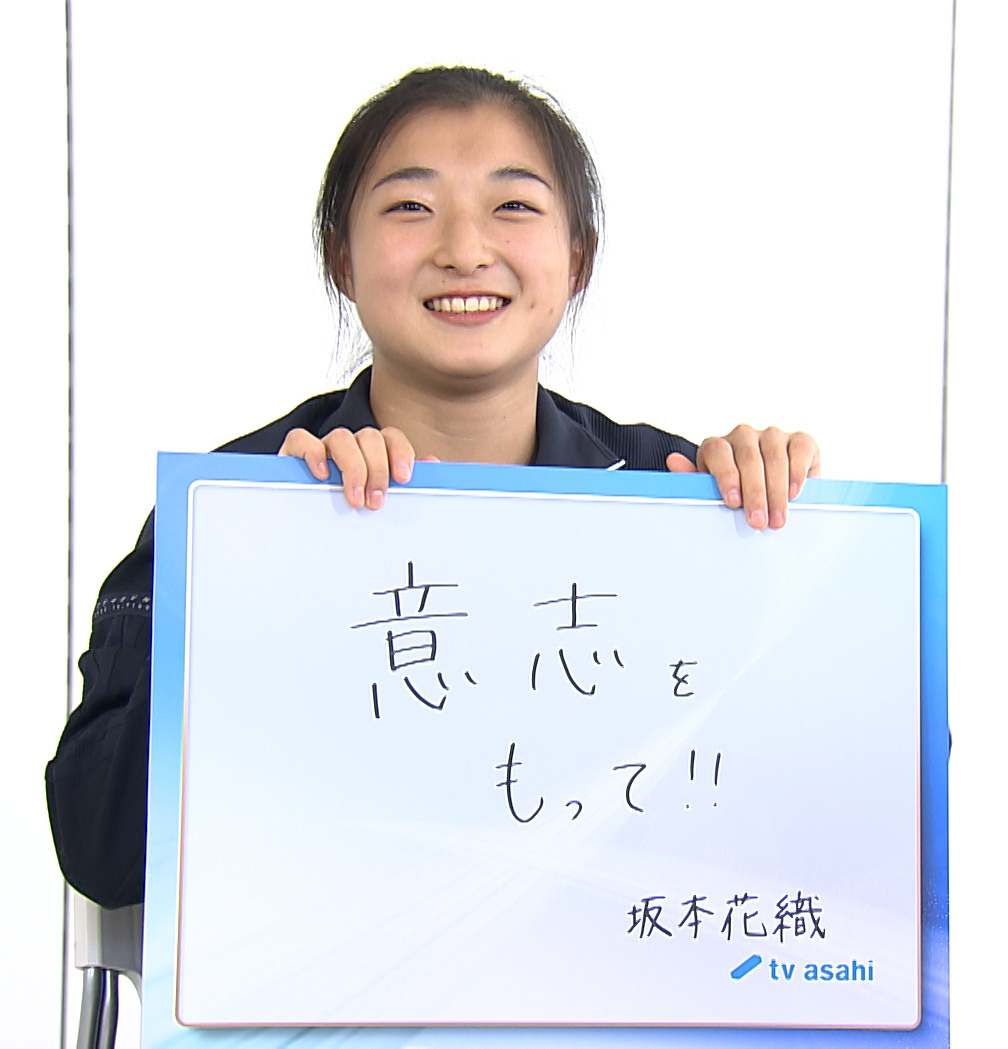 意志を
もって!!
坂本花織
tv asahi